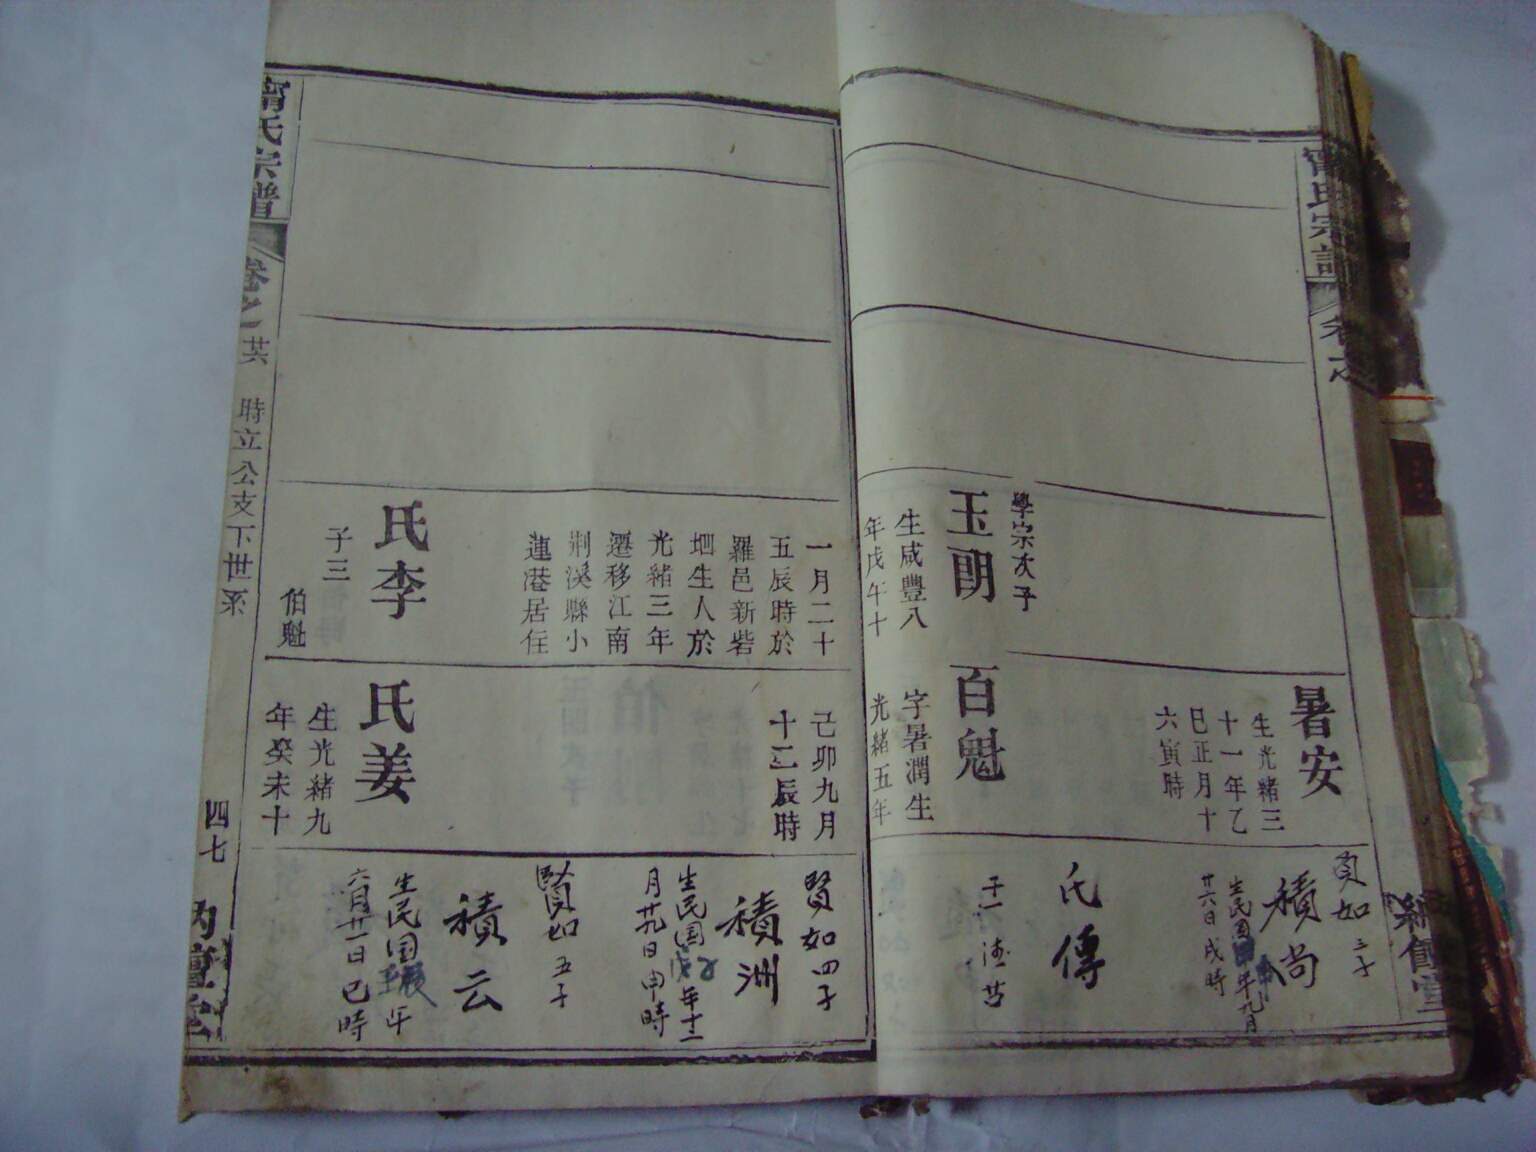 甯氏宗譜
卷之
學宗次子
玉朗
生咸豐八
年戊午十
一月二十
五辰時於
羅邑新砦
㘭生人於
光緒三年
遷移江南
荆溪縣小
蓮港居住
氏李
子三
伯魁
暑安
生光緒三
十一年乙
巳正月十
六寅時
百魁
字暑潤生
光緒五年
己卯九月
十二辰時
氏姜
生光緒九
年癸未十
賢如三子
積尚
生民國年九月
廿六日戌時
氏傳
子一
賢如四子
積洲
生民国年十二
月廿九日申時
賢如五子
積云
生民国年
六月廿一日巳時
甯氏宗譜
卷之
廿六
時立公支下世系
四七